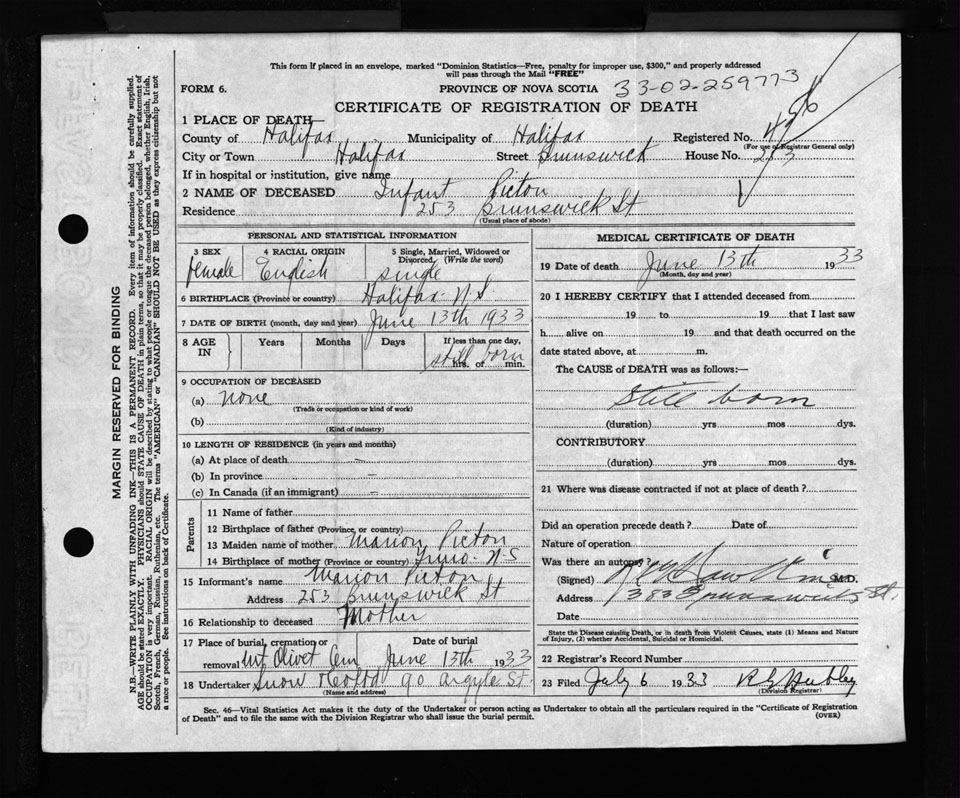 This form if placed in an envelope, marked "Dominion Statistics—Free, penalty for improper use, $300," and properly addressed
will pass through the Mail "FREE"
FORM 6. PROVINCE OF NOVA SCOTIA 33-02-259773
CERTIFICATE OF REGISTRATION OF DEATH
1 PLACE OF DEATH—
County of Halifax Municipality of Halifax Registered No.
(For use of Registrar General only)
City or Town Halifax Street Brunswick House No. 253
If in hospital or institution, give name
2 NAME OF DECEASED Infant Picton
Residence 253 Brunswick St
(Usual place of abode)
PERSONAL AND STATISTICAL INFORMATION
3 SEX 4 RACIAL ORIGIN 5 Single, Married, Widowed or
Divorced. (Write the word)
female English single
6 BIRTHPLACE (Province or country) Halifax N.S.
7 DATE OF BIRTH (month, day and year) June 13th 1933
8 AGE IN Years Months Days If less than one day,
still born
hrs. or min.
9 OCCUPATION OF DECEASED
(a) none
(Trade or occupation or kind of work)
(b)
(Kind of industry)
10 LENGTH OF RESIDENCE (in years and months)
(a) At place of death —
(b) In province —
(c) In Canada (if an immigrant) —
Parents
11 Name of father
12 Birthplace of father (Province, or country)
13 Maiden name of mother Marion Picton
14 Birthplace of mother (Province or country) Truro N-S
15 Informant's name Marion Picton
Address 253 Brunswick St
16 Relationship to deceased Mother
17 Place of burial, cremation or Date of burial
removal Mt Olivet Cem June 15th 1933
18 Undertaker Snow & Co Ltd 90 Argyle St
(Name and address)
MEDICAL CERTIFICATE OF DEATH
19 Date of death June 13th 1933
(Month, day and year)
20 I HEREBY CERTIFY that I attended deceased from
19 to 19 that I last saw
h alive on 19 and that death occurred on the
date stated above, at m.
The CAUSE of DEATH was as follows:—
Still born
(duration) yrs mos dys.
CONTRIBUTORY
(duration) yrs mos dys.
21 Where was disease contracted if not at place of death?
Did an operation precede death? Date of
Nature of operation
Was there an autopsy?
(Signed) M.D.
Address 383 Brunswick St.
Date
State the Disease causing Death, or in death from Violent Causes, state (1) Means and Nature
of Injury, (2) whether Accidental, Suicidal or Homicidal.
22 Registrar's Record Number
23 Filed July 6 1933
(Division Registrar)
Sec. 46—Vital Statistics Act makes it the duty of the Undertaker or person acting as Undertaker to obtain all the particulars required in the "Certificate of Registration
of Death" and to file the same with the Division Registrar who shall issue the burial permit. (OVER)
MARGIN RESERVED FOR BINDING
N.B.—WRITE PLAINLY WITH UNFADING INK—THIS IS A PERMANENT RECORD. Every item of information should be carefully supplied.
AGE should be stated EXACTLY. PHYSICIANS should STATE CAUSE OF DEATH in plain terms, so that it may be properly classified. Exact statement of
OCCUPATION is very important. RACIAL ORIGIN will be described by stating to what people or tongue the deceased person belonged, whether English, Irish,
Scotch, French, German, Russian, Ruthenian, etc. The terms "AMERICAN" or "CANADIAN" SHOULD NOT BE USED as they express citizenship but not
a race or people. See instructions on back of Certificate.